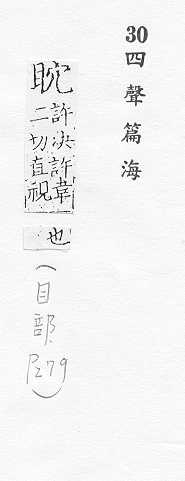 30
四聲篇海
許決許韋
二切直視
也
(目部,P279)